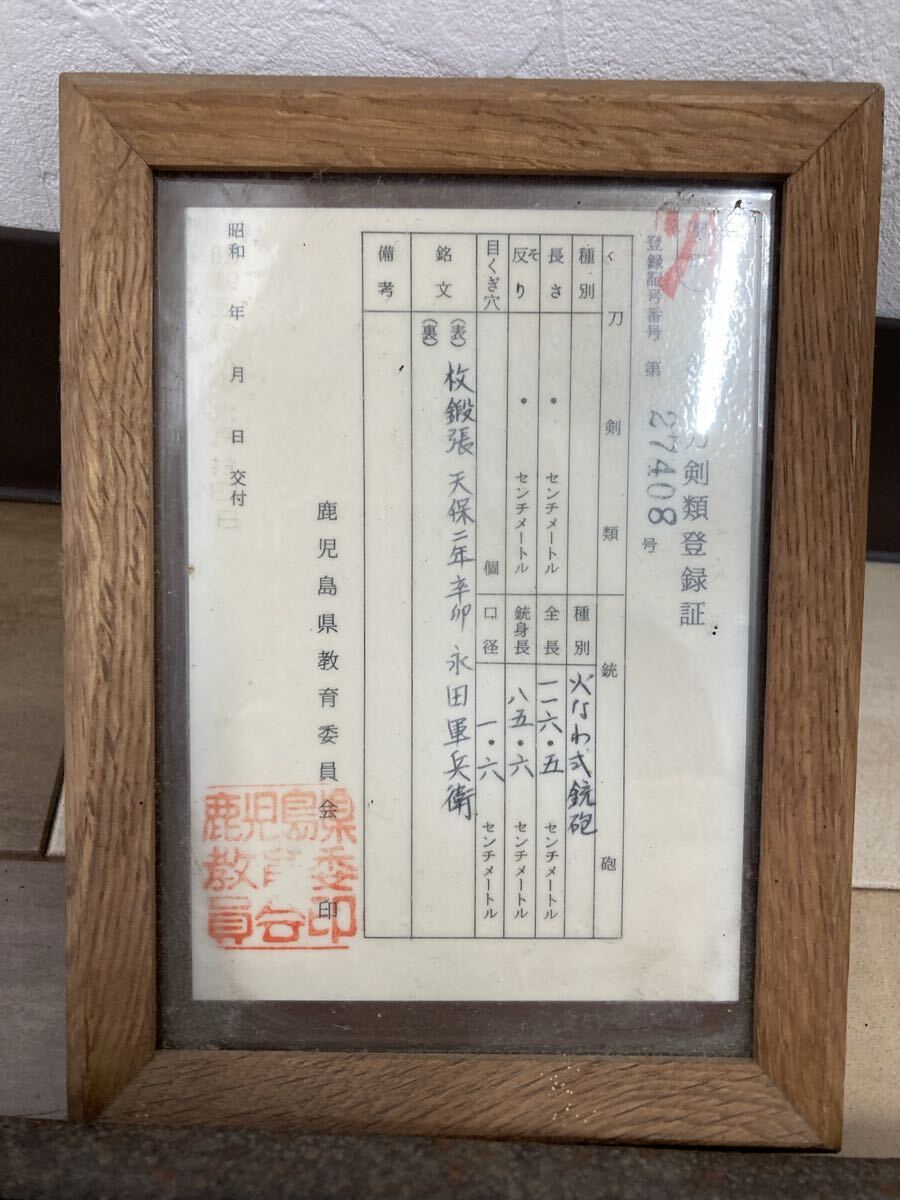 刀剣類登録証
登録記号番号 第 27408 号
刀剣類
種別
長さ ・ センチメートル
反り そ ・ センチメートル
目くぎ穴 個
銃砲
種別 火なわ式銃砲
全長 一一六・五 センチメートル
銃身長 八五・六 センチメートル
口径 一・六 センチメートル
銘文 (表) (裏) 枚鍛張 天保二年辛卯 永田軍兵衛
備考
鹿児島県教育委員会 印
昭和 年 月 日 交付
鹿児島県
教育委
員会印